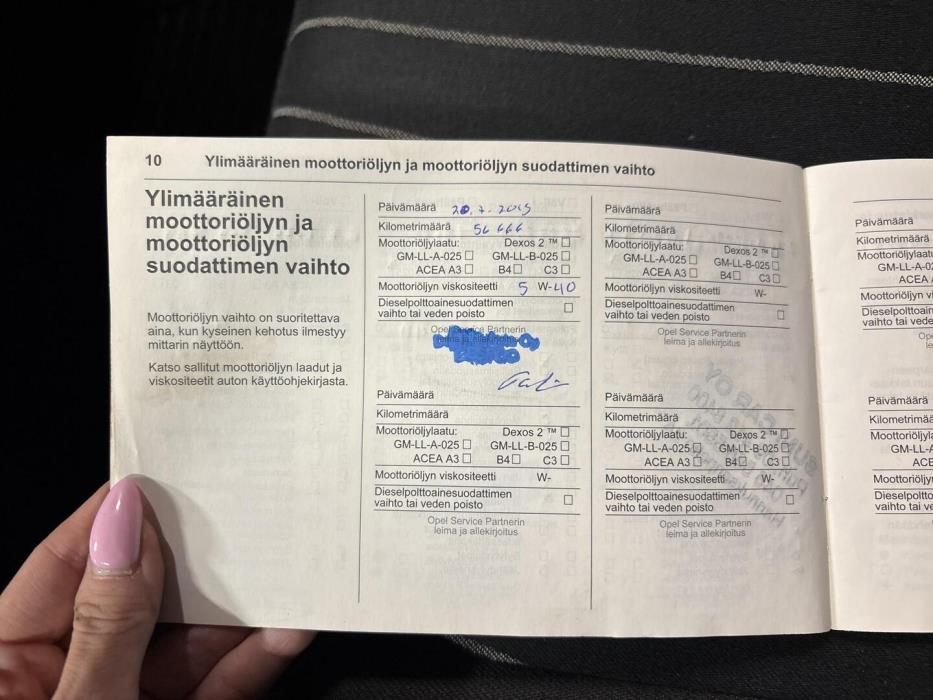 10 Ylimääräinen moottoriöljyn ja moottoriöljyn suodattimen vaihto
Ylimääräinen
moottoriöljyn ja
moottoriöljyn
suodattimen vaihto
Moottoriöljyn vaihto on suoritettava
aina, kun kyseinen kehotus ilmestyy
mittarin näyttöön.
Katso sallitut moottoriöljyn laadut ja
viskositeetit auton käyttöohjekirjasta.
Päivämäärä
Kilometrimäärä 56 666
Moottoriöljylaatu: Dexos 2 ™ ☐
GM-LL-A-025 ☐ GM-LL-B-025 ☐
ACEA A3 ☐ B4 ☐ C3 ☐
Moottoriöljyn viskositeetti 5 W-40
Dieselpolttoainesuodattimen
vaihto tai veden poisto ☐
Opel Service Partnerin
leima ja allekirjoitus
Päivämäärä
Kilometrimäärä
Moottoriöljylaatu: Dexos 2 ™ ☐
GM-LL-A-025 ☐ GM-LL-B-025 ☐
ACEA A3 ☐ B4 ☐ C3 ☐
Moottoriöljyn viskositeetti W-
Dieselpolttoainesuodattimen
vaihto tai veden poisto ☐
Opel Service Partnerin
leima ja allekirjoitus
Päivämäärä
Kilometrimäärä
Moottoriöljylaatu: Dexos 2 ™ ☐
GM-LL-A-025 ☐ GM-LL-B-025 ☐
ACEA A3 ☐ B4 ☐ C3 ☐
Moottoriöljyn viskositeetti W-
Dieselpolttoainesuodattimen
vaihto tai veden poisto ☐
Opel Service Partnerin
leima ja allekirjoitus
Päivämäärä
Kilometrimäärä
Moottoriöljylaatu: Dexos 2 ™ ☐
GM-LL-A-025 ☐ GM-LL-B-025 ☐
ACEA A3 ☐ B4 ☐ C3 ☐
Moottoriöljyn viskositeetti W-
Dieselpolttoainesuodattimen
vaihto tai veden poisto ☐
Opel Service Partnerin
leima ja allekirjoitus
Päivämäärä
Kilometrimäärä
Moottoriöljylaatu
GM-LL-A-0
ACEA
Moottoriöljyn vi
Dieselpolttoain
vaihto tai ve
Päivämäärä
Kilometrimäär
Moottoriöljyla
GM-LL-A
ACE
Moottoriöljyn
Dieselpolttoa
vaihto tai ve